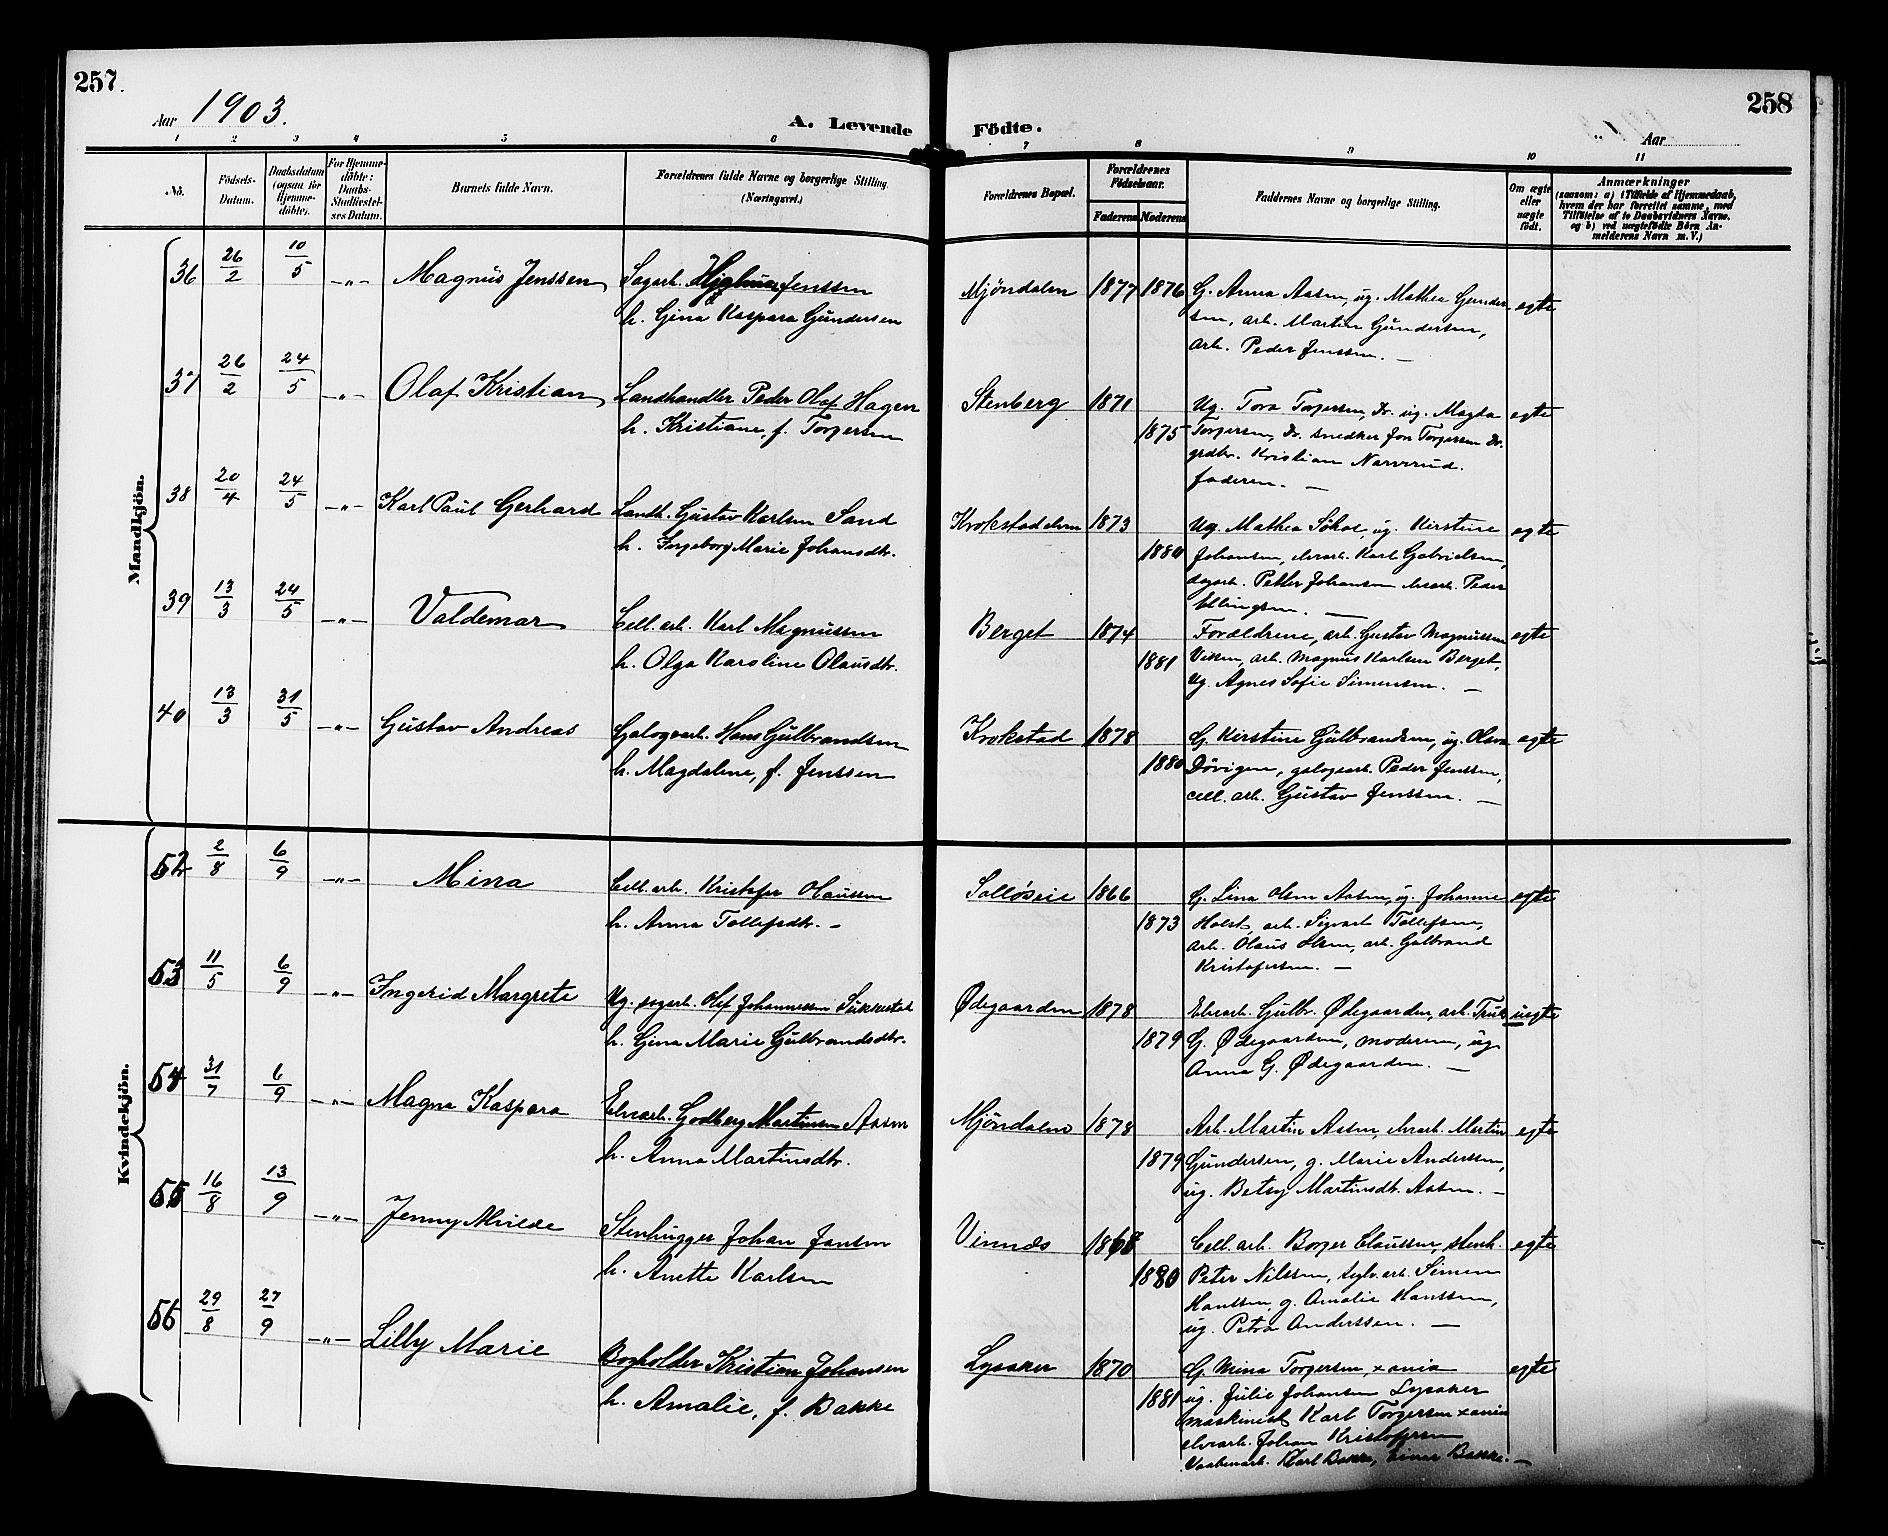 257.
258
Aar 1903.
A. Levende
Födte.
Aar
1 2 3 4 5 6
7 8 9 10 11
No.
Födsels-
Datum.
Daabsdatum
(ogsaa for
Hjemme-
döbte).
For Hjemme-
döbte:
Daabs-
Stadfæstel-
ses Datum.
Barnets fulde Navn.
Forældrenes fulde Navne og borgerlige Stilling.
(Næringsvei.)
Forældrenes Bopæl.
Forældrenes
Födselsaar.
Faderens
Moderens
Faddernes Navne og borgerlige Stilling.
Om ægte
eller
uægte
født.
Anmærkninger
(saasom: a) i Tilfælde af Hjemmedaab,
hvem der har forrettet samme, med
Tilføielse af to Daabsvidners Navne.
og b) ved uægtefødte Börn An-
melderens Navn m. V.)
Mandkjön.
36 26/2 10/5 -"- Magnus Jenssen Sagarb. Hjalmar Jenssen Mjöndalen 1877 1876 G. Anna Aasen, ug. Mathea Gunder- egte
h. Gina Kaspara Gundersen
sen, arb. Martin Gundersen,
arb. Peder Jenssen. —
37 26/2 24/5 -"- Olaf Kristian Landhandler Peder Olaf Hagen Stenberg 1871 Ug. Tora Torgersen, Dr. ug. Magda egte
h. Kristiane, f. Torgersen 1875 Torgersen, Dr. snedker Jon Torgersen Dr.
grdbr. Kristian Narverud.
faderen. —
38 20/4 24/5 -"- Karl Paul Gerhard Landh. Gustav Karlsen Sand Krokstadelven 1873 Ug. Mathea Sökol, ug. Kirstine egte
h. Ingeborg Marie Johansdtr. 1880 Johansen, elvearb. Karl Gabrielsen,
sagarb. Petter Johansen elvearb. Peder
Ellingsen. —
39 13/3 24/5 -"- Valdemar Cell. arb. Karl Magnussen Berget 1874 Forældrene, arb. Gustav Magnussen egte
h. Olga Karoline Olausdtr. 1881 Viken, arb. Magnus Karlsen Berget,
Ug. Agnes Sofie Simensen. —
40 13/3 31/5 -"- Gustav Andreas Galogearb. Hans Gulbrandsen Krokstad 1878 G. Kirstine Gulbrandsen, ug. Olava egte
h. Magdalene, f. Jenssen 1880 Dövigen, galogearb. Peder Jenssen,
cell. arb. Gustav Jenssen. —
Kvindekjön.
52 2/8 6/9 -"- Mina Cell. arb. Kristofer Olaussen Solløseie 1866 G. Lina Olsen Aasen, ug. Johanne egte
h. Anna Tollefsdtr. — 1873 Holst, arb. Sigvart Tollefsen,
arb. Olaus Olsen, arb. Gulbrand
Kristofersen. —
53 11/5 6/9 -"- Ingerid Margrete Ug. sagarb. Olef Johannessen Ødegaarden 1878 Elvearb. Gulbr. Ødegaarden, arb. uegte
h. Gina Marie Gulbrandsdtr. 1879 G. Ødegaarden, moderen, ug.
Anna G. Ødegaarden. —
54 31/7 6/9 -"- Magna Kaspara Elvearb. Godberg Martinsen Aasen Mjöndalen 1878 Arb. Martin Aasen, elvearb. Martin egte
h. Anna Martinsdtr. 1879 Gundersen, g. Marie Anderssen,
ug. Betsy Martinsdtr. Aasen. —
55 16/8 13/9 -"- Jenny Milde Stenhugger Johan Jansen Vinnæs 1868 Cell. arb. Borger Claussen, stenh. egte
h. Anette Karlsen 1880 Peter Nilssen, sylv. arb. Simen
Hanssen, g. Amalie Hanssen,
ug. Petra Anderssen. —
56 29/8 27/9 -"- Lilly Marie Bogholder Kristian Johansen Lysaker 1870 G. Mina Torgersen, x ania egte
h. Amalie, f. Bakke 1881 ug. Julie Johansen Lysaker
maskinist Karl Torgersen x ania
elvearb. Johan Kristofersen
Vaabenarb. Karl Bakke, Einar Bakke. —